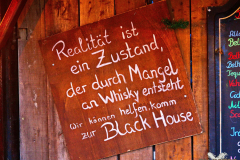 Realität ist
ein Zustand,
der durch Mangel
an Whisky entsteht.
Wir können helfen, komm
zur Black House